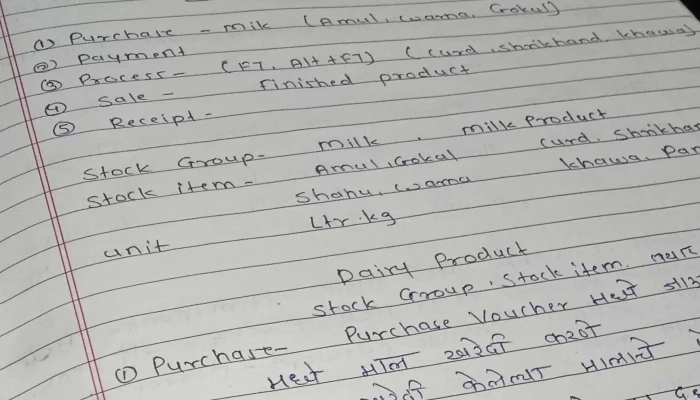 (1) Purchase - milk (Amul, warna, Gokul)
(2) Payment
(3) Process - (F7, Alt + F7) (curd, shrikhand, khawa)
(4) Sale - Finished product
(5) Receipt -
Stock Group - milk . milk Product
Stock item - Amul, Gokul (curd, Shrikhan
Shahu, warna khawa, Pan
unit Ltr. kg
Dairy Product
Stock Group, Stock item,
(1) Purchase - Purchase Voucher मध्ये
मध्ये माल खरेदी करणे
केलेल्या मालाचे